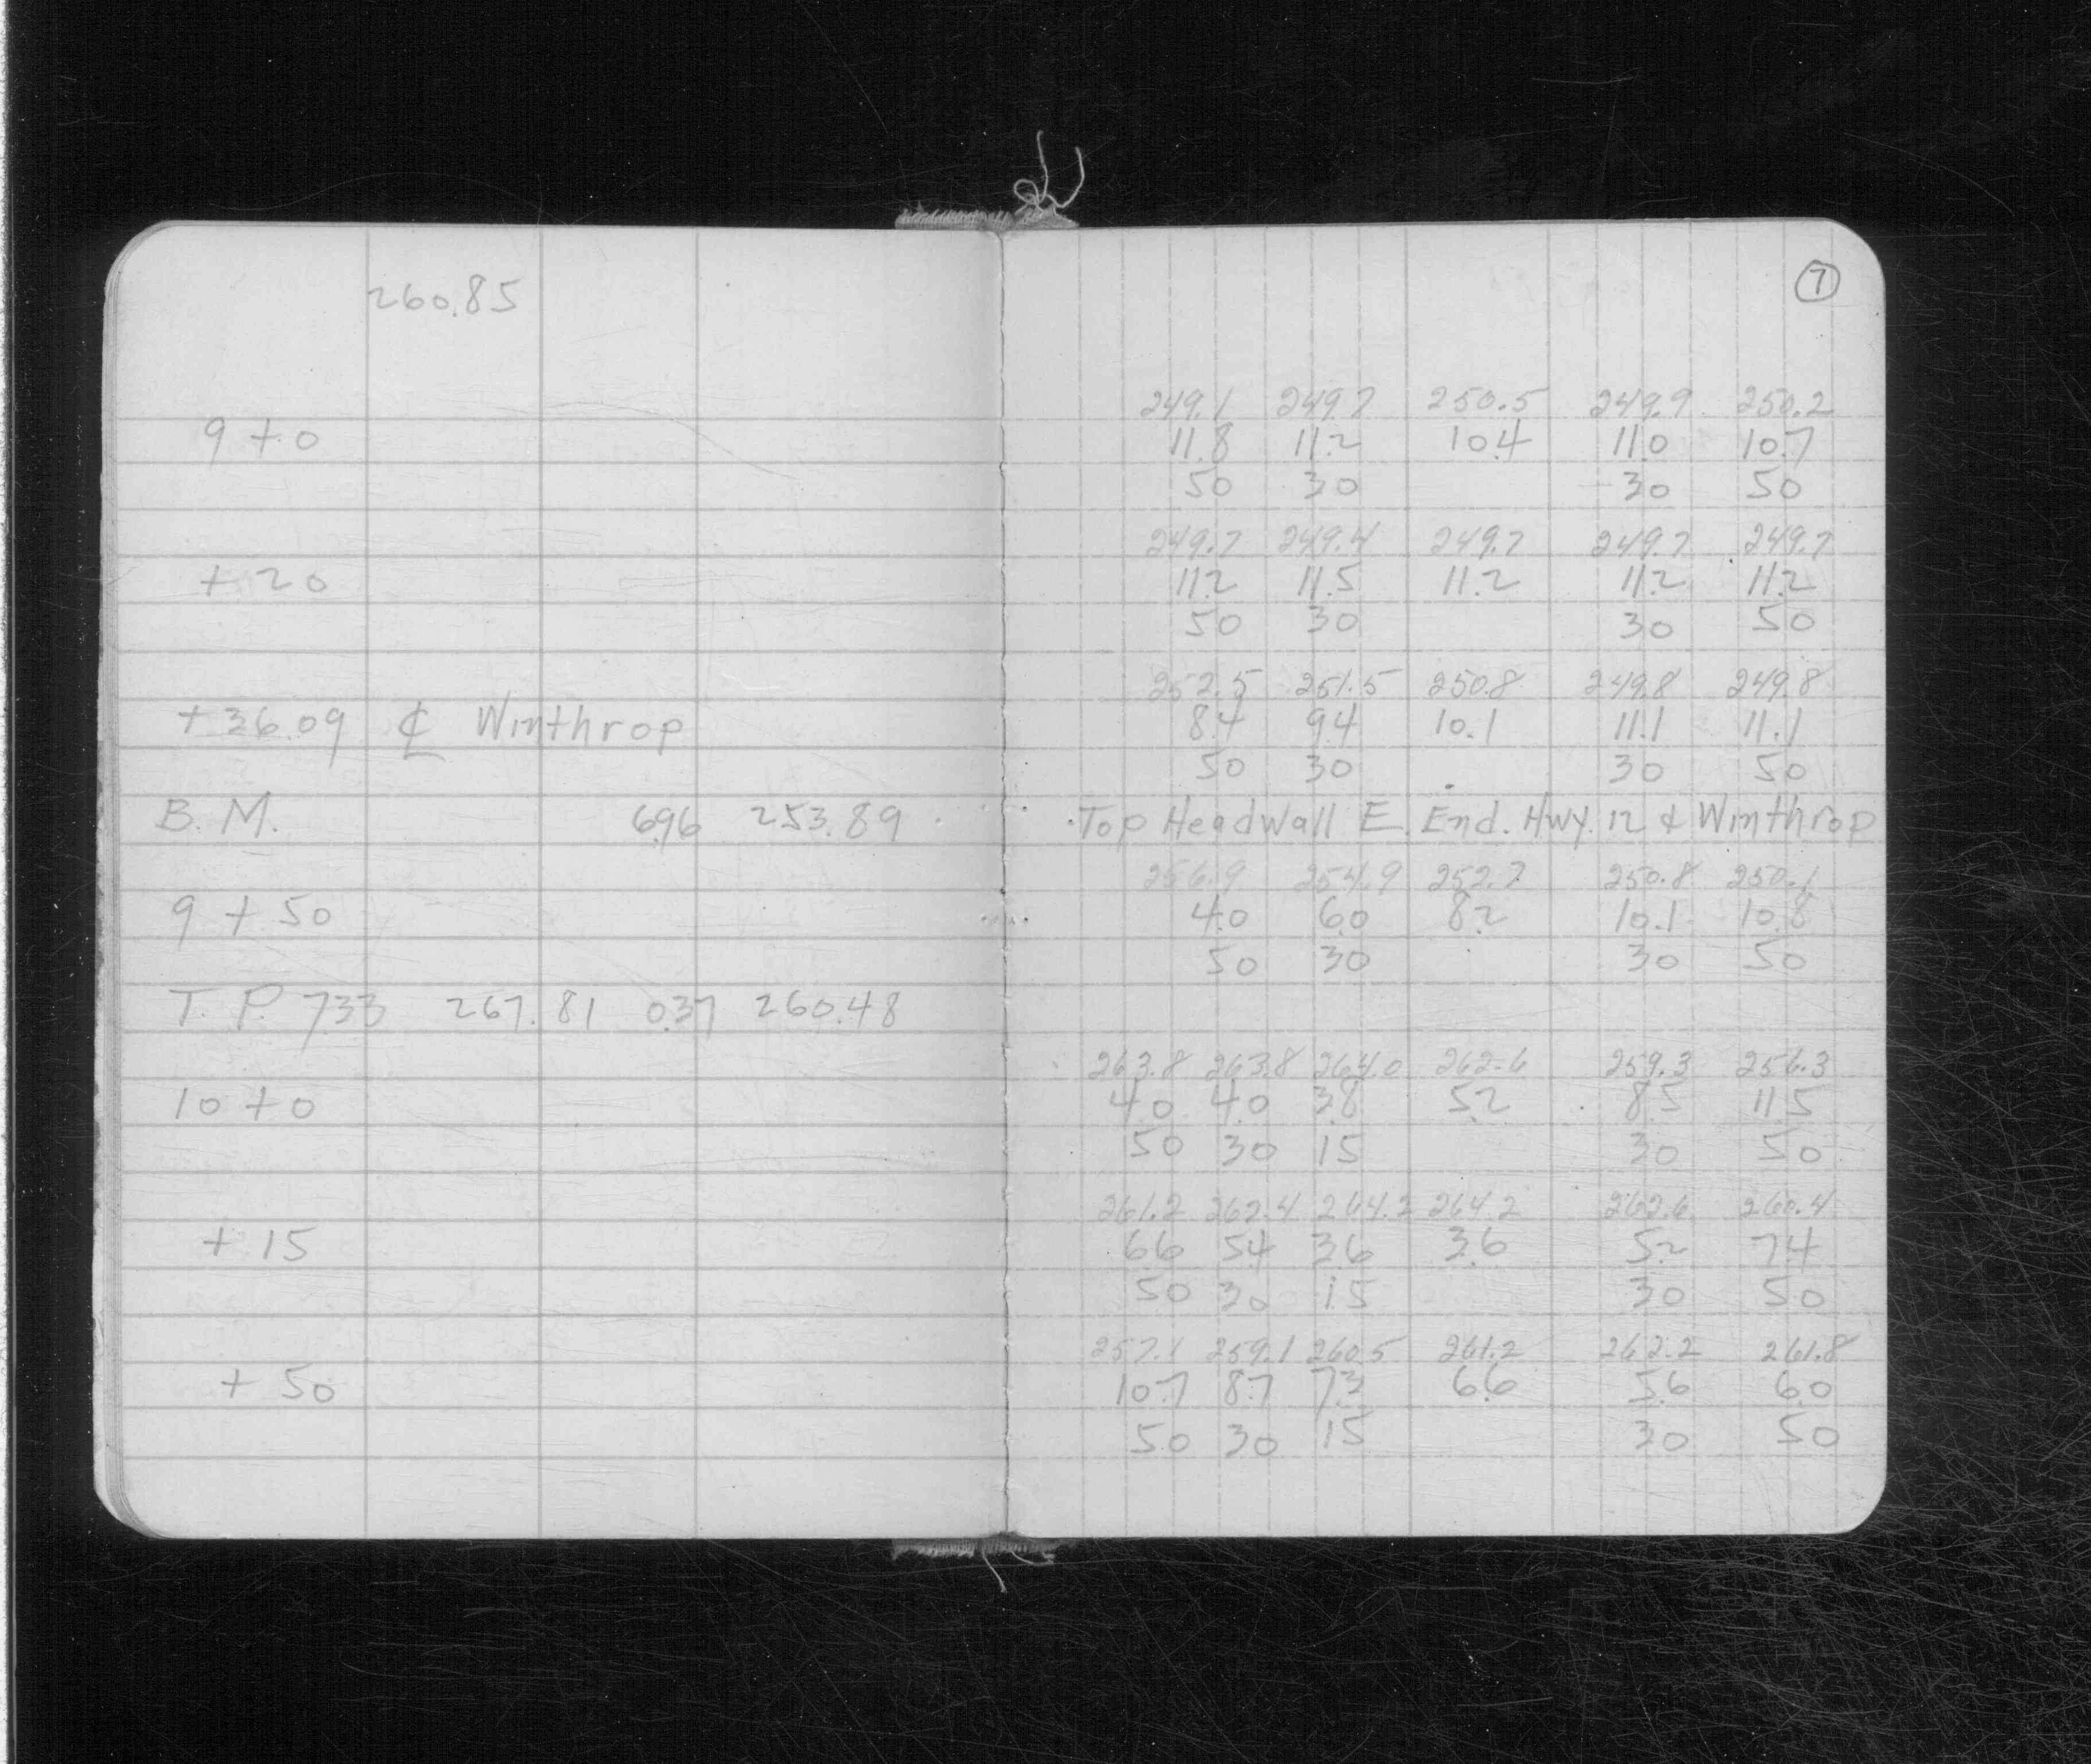 7
260.85
249.1 249.7 250.5 249.9 250.2
9+0 11.8 11.2 10.4 11.0 10.7
50 30 30 50
249.7 249.4 249.7 249.7 249.7
+20 11.2 11.5 11.2 11.2 11.2
50 30 30 50
252.5 251.5 250.8 249.8 249.8
+36.09 ℄ Winthrop 8.4 9.4 10.1 11.1 11.1
50 30 30 50
B.M. 6.96 253.89 Top Headwall E. End. Hwy. 12 & Winthrop
256.9 254.9 252.7 250.8 250.1
9+50 4.0 6.0 8.2 10.1 10.8
50 30 30 50
T.P. 7.33 267.81 0.37 260.48
263.8 263.8 264.0 262.6 259.3 256.3
10+0 4.0 4.0 3.8 5.2 8.5 11.5
50 30 15 30 50
261.2 262.4 264.2 264.2 262.6 260.4
+15 6.6 5.4 3.6 3.6 5.2 7.4
50 30 15 30 50
257.1 259.1 260.5 261.2 262.2 261.8
+50 10.7 8.7 7.3 6.6 5.6 6.0
50 30 15 30 50